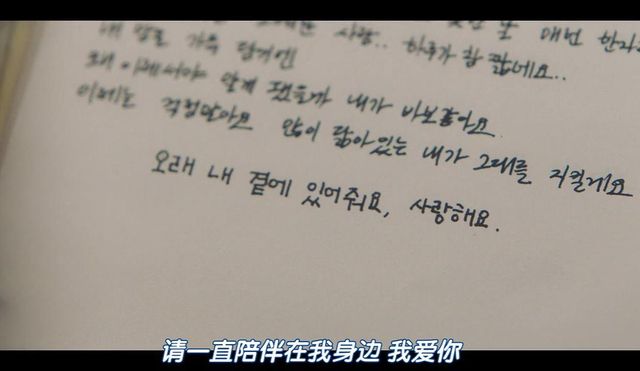 날 매번 한자
사랑.. 하루가 참 짧네요..
내 가득 담기엔
왜 이제서야 알게 됐을까 내가 바보같아요
이제는 걱정말아요 많이 닮아있는 내가 그대를 지킬게요
오래 내 곁에 있어줘요, 사랑해요.
请一直陪伴在我身边 我爱你